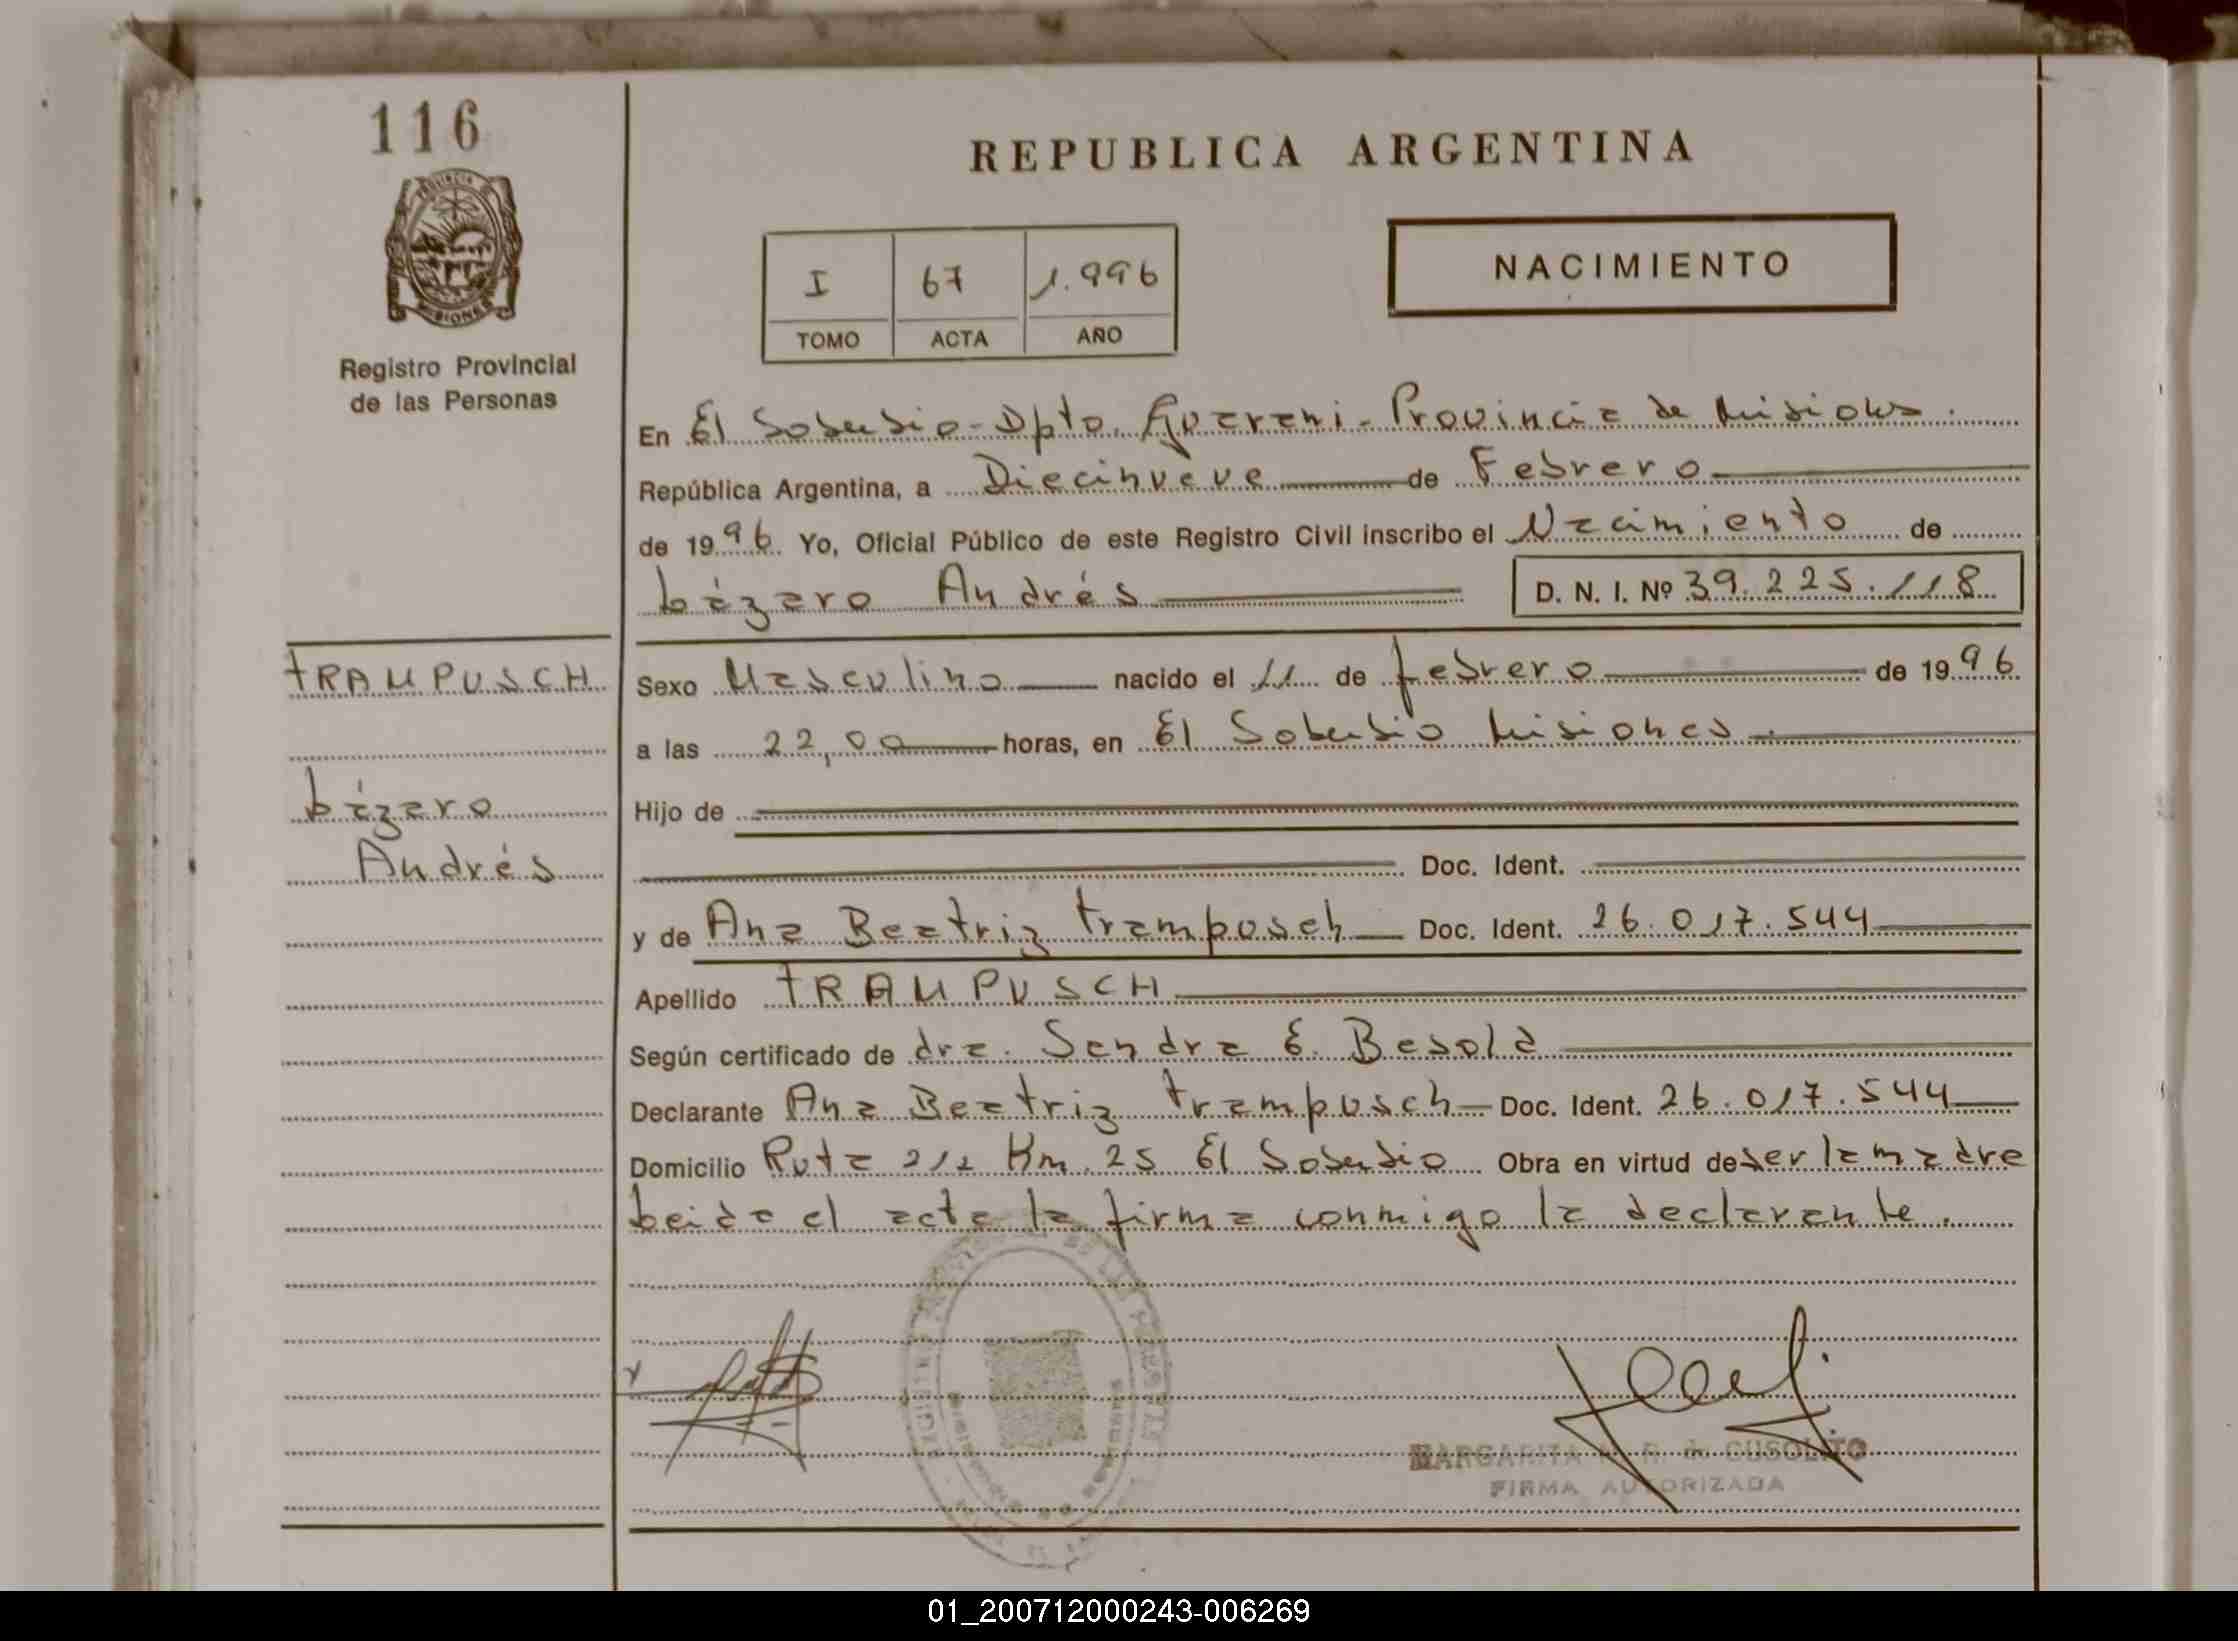 116
REPUBLICA ARGENTINA
I 67 1.996
TOMO ACTA AÑO
NACIMIENTO
Registro Provincial
de las Personas
En El Soberbio - Dpto. Guaraní - Provincia de Misiones.
República Argentina, a Diecinueve de Febrero
de 1996 Yo, Oficial Público de este Registro Civil inscribo el Nacimiento de
Lázaro Andrés D. N. I. Nº 39.225.118
TRAMPUSCH
Sexo Masculino nacido el 11 de febrero de 1996
a las 22,00 horas, en El Soberbio Misiones
Lázaro
Andrés
Hijo de
Doc. Ident.
y de Ana Beatriz Trampusch Doc. Ident. 26.017.544
Apellido TRAMPUSCH
Según certificado de dra. Sandra E. Besold
Declarante Ana Beatriz Trampusch Doc. Ident. 26.017.544
Domicilio Ruta 212 Km. 25 El Soberbio Obra en virtud de ser la madre
Leida el acta la firma conmigo la declarante.
MARGARITA R. de CUSOLITO
FIRMA AUTORIZADA
01_200712000243-006269